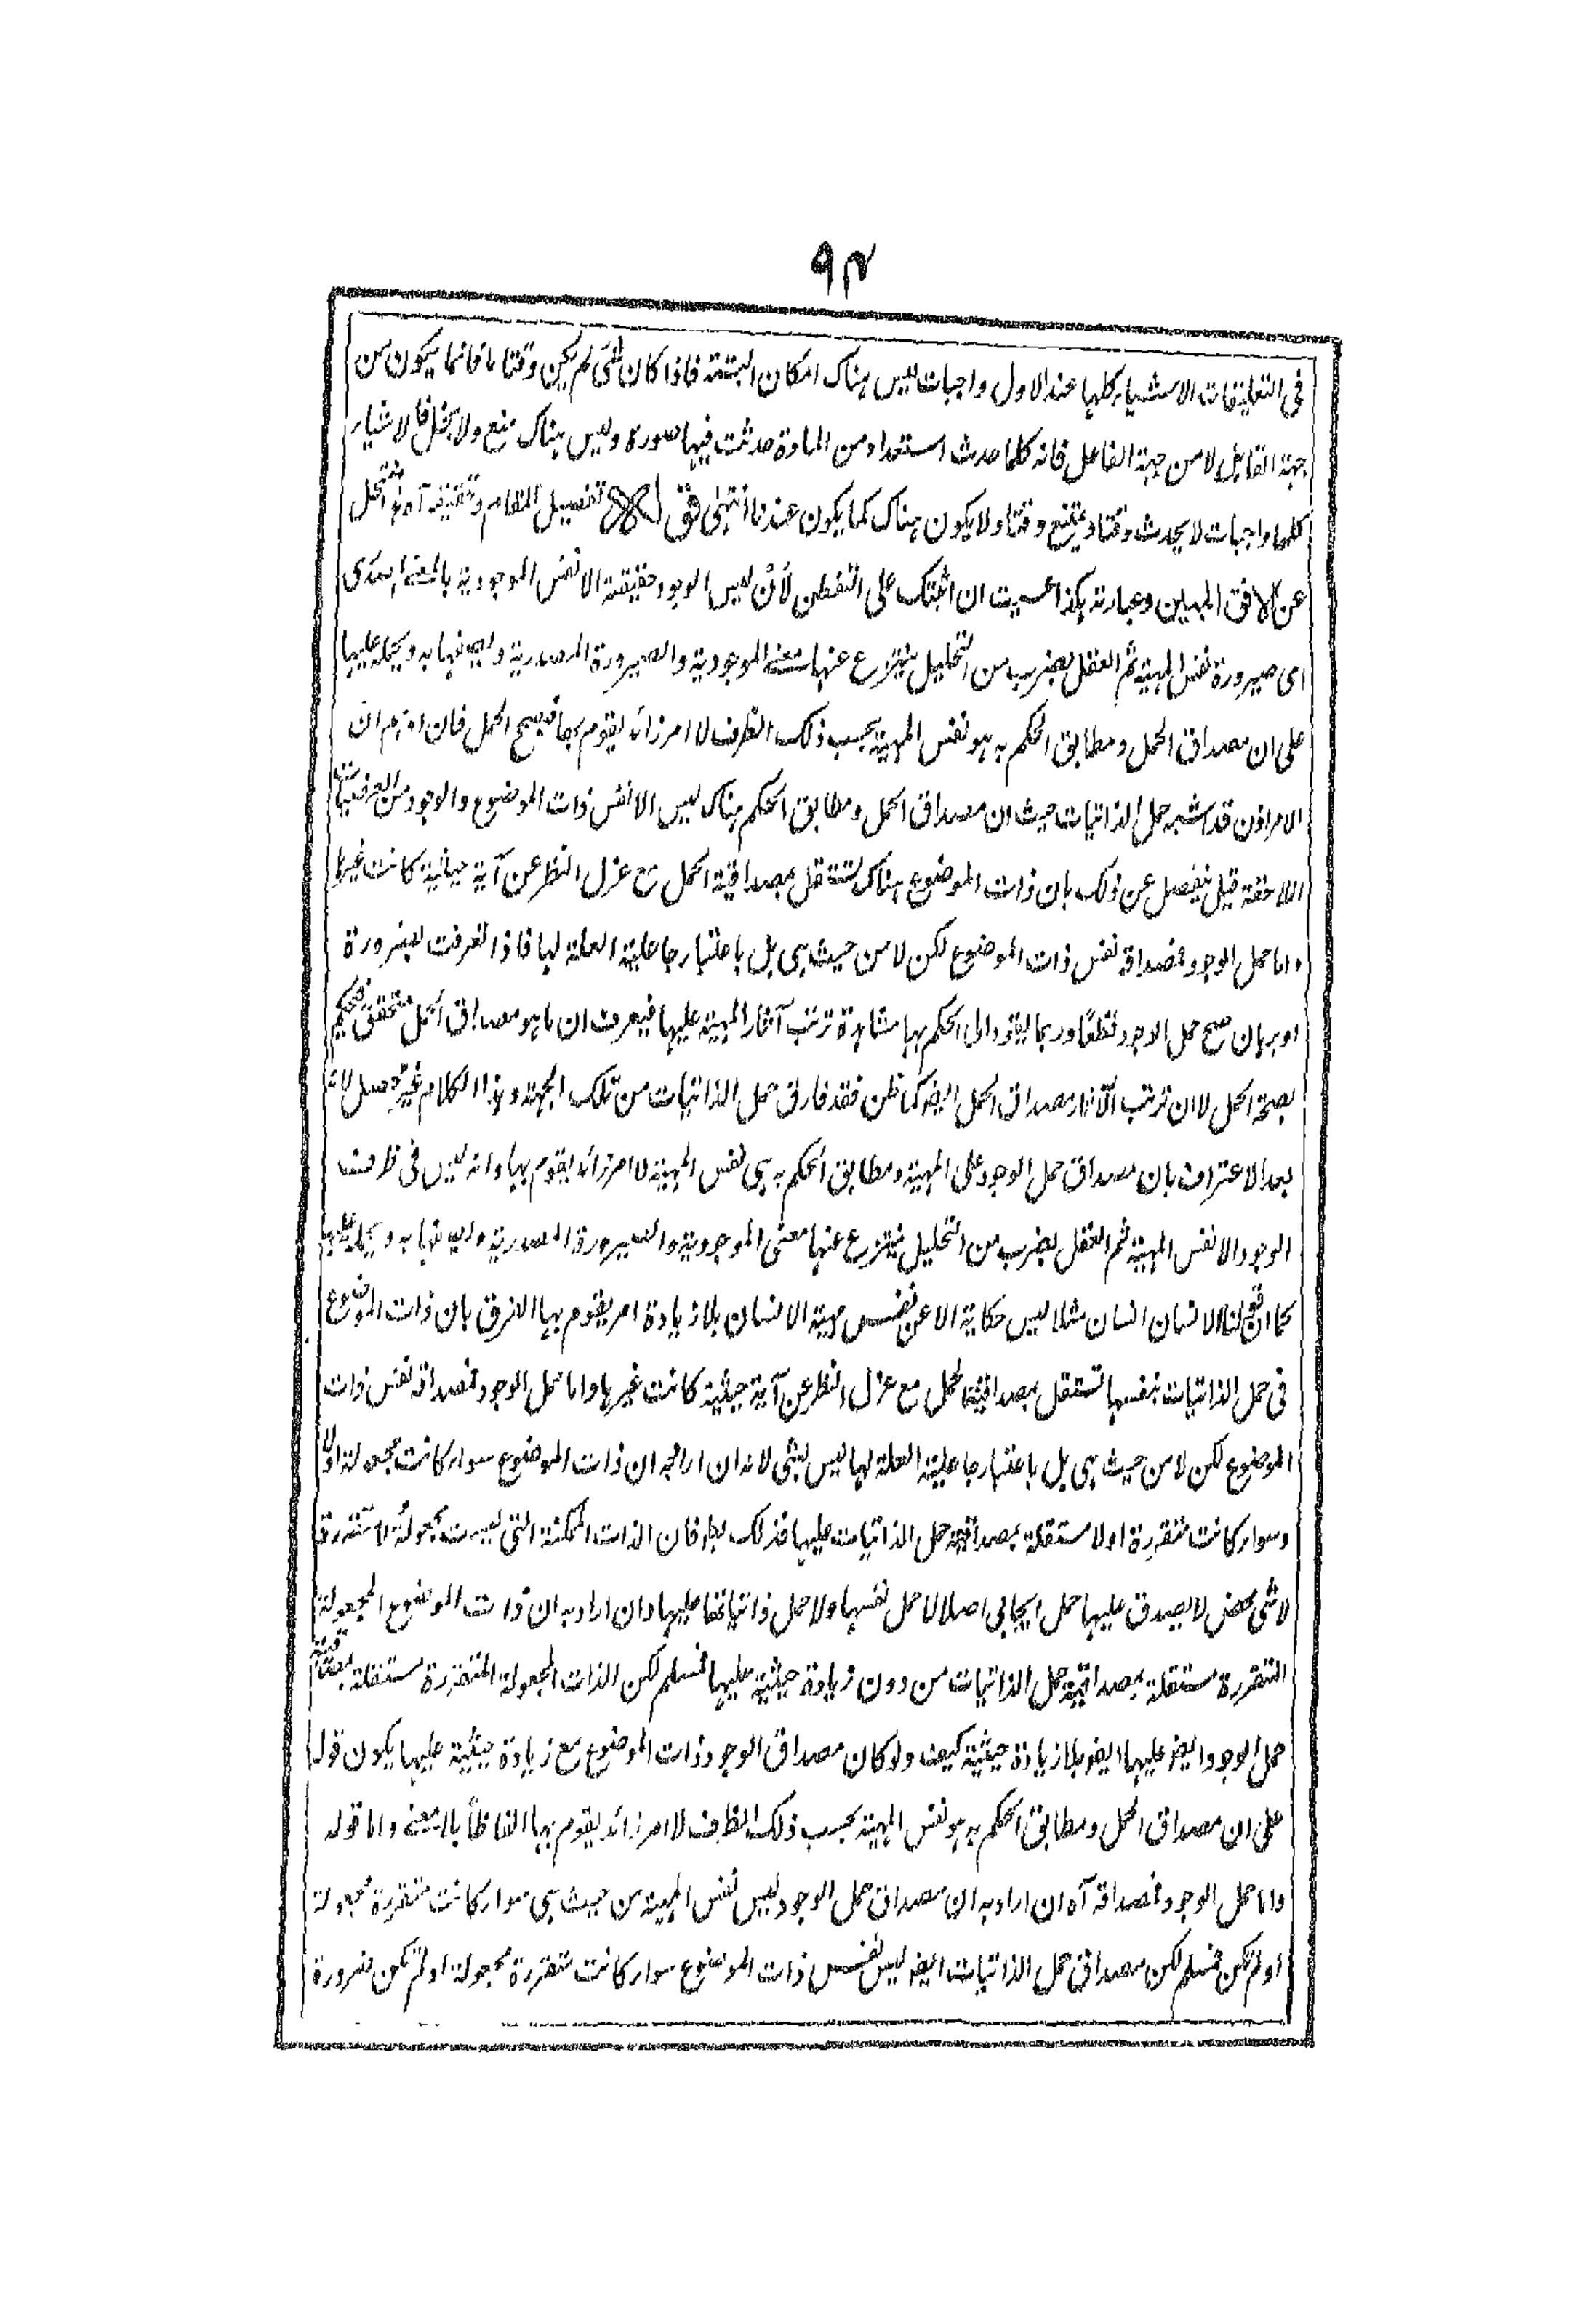 ٩٤
فى التعليقات الاشياء كلها عند الاول واجبات ليس هناك امكان البتة فاذا كان شئ لم يكن وقتا ما فانما يكون من
جهة القابل لا من جهة الفاعل فانه كلما حدث استعداد من المادة حدثت فيها صورة وليس هناك منع ولا بخل فالاشياء
كلها واجبات لا يحدث وقتا ويمتنع وقتا ولا يكون هناك كما يكون عندنا انتهى فثق قوله تفصيل المقام وتحقيقه آه هذا منتحل
عن الافق المبين وعبارته هكذا عسيت ان اثبتك على التفطن لأن ليس الوجود حقيقته الا نفس الموجودية بالمعنى المصدرى
اى صيرورة نفس المهية ثم العقل بضرب من التحليل ينتزع عنها معنى الموجودية والصيرورة المصدرية ويصفها به ويحمله عليها
على ان مصداق الحمل ومطابق الحكم به هو نفس المهية بحسب ذلك الظرف لا امر زائد يقوم بها فيصح الحمل فان اوهم ان
الامر اذن قد اشبه حمل الذاتيات حيث ان مصداق الحمل ومطابق الحكم هناك ليس الا نفس ذات الموضوع والوجود من العرضيات
اللاحقة قيل ينفصل عن ذلك بان ذات الموضوع هناك تستقل بمصداقية الحمل مع عزل النظر عن آية حيثية كانت غيرها
واما حمل الوجود فمصداقه نفس ذات الموضوع لكن لا من حيث هى بل باعتبار جاعلية العلة لها فاذا تعرفت بضرورة
او برهان صح حمل الوجود قطعًا وربما يقود الى الحكم بها مشاهدة ترتب آثار المهية عليها فيعرف ان ما هو مصداق الحمل متحقق فيحكم
بصحة الحمل لا ان ترتب الآثار مصداق الحمل ايضا كما ظن فقد فارق حمل الذاتيات من تلك الجهة وهذا الكلام غير محصل لانه
بعد الاعتراف بان مصداق حمل الوجود على المهية ومطابق الحكم به هى نفس المهية لا امر زائد يقوم بها وانه ليس فى ظرف
الوجود الا نفس المهية ثم العقل بضرب من التحليل ينتزع عنها معنى الموجودية والصيرورة المصدرية ويصفها به ويحمله عليها
كما ان قولنا الانسان انسان مثلا ليس حكاية الا عن نفس مهية الانسان بلا زيادة امر يقوم بها الفرق بان ذات الموضوع
فى حمل الذاتيات بنفسها تستقل بمصداقية الحمل مع عزل النظر عن آية حيثية كانت غيرها واما حمل الوجود فمصداقه نفس ذات
الموضوع لكن لا من حيث هى بل باعتبار جاعلية العلة لها ليس بشئ لانه ان اراد به ان ذات الموضوع سواء كانت مجعولة او لا
وسواء كانت متقررة او لا مستقلة بمصداقية حمل الذاتيات عليها فذلك باطل فان الذات الممكنة التى ليست مجعولة لا متقررة
لا شئ محض لا يصدق عليها حمل ايجابى اصلا لا حمل نفسها ولا حمل ذاتياتها عليها وان اراد به ان ذات الموضوع المجعولة
المتقررة مستقلة بمصداقية حمل الذاتيات من دون زيادة حيثية عليها فمسلم لكن الذات المجعولة المتقررة مستقلة بمصداقية
حمل الوجود ايضا عليها ايضا بلا زيادة حيثية كيف ولو كان مصداق الوجود ذات الموضوع مع زيادة حيثية عليها يكون قوله
على ان مصداق الحمل ومطابق الحكم به هو نفس المهية بحسب ذلك الظرف لا امر زائد يقوم بها الفاظاً بلا معنى واما قوله
واما حمل الوجود فمصداقه آه ان اراد به ان مصداق حمل الوجود ليس نفس المهية من حيث هى سواء كانت متقررة مجعولة
او لم تكن فمسلم لكن مصداق حمل الذاتيات ايضا ليس نفس ذات الموضوع سواء كانت متقررة مجعولة او لم تكن ضرورة